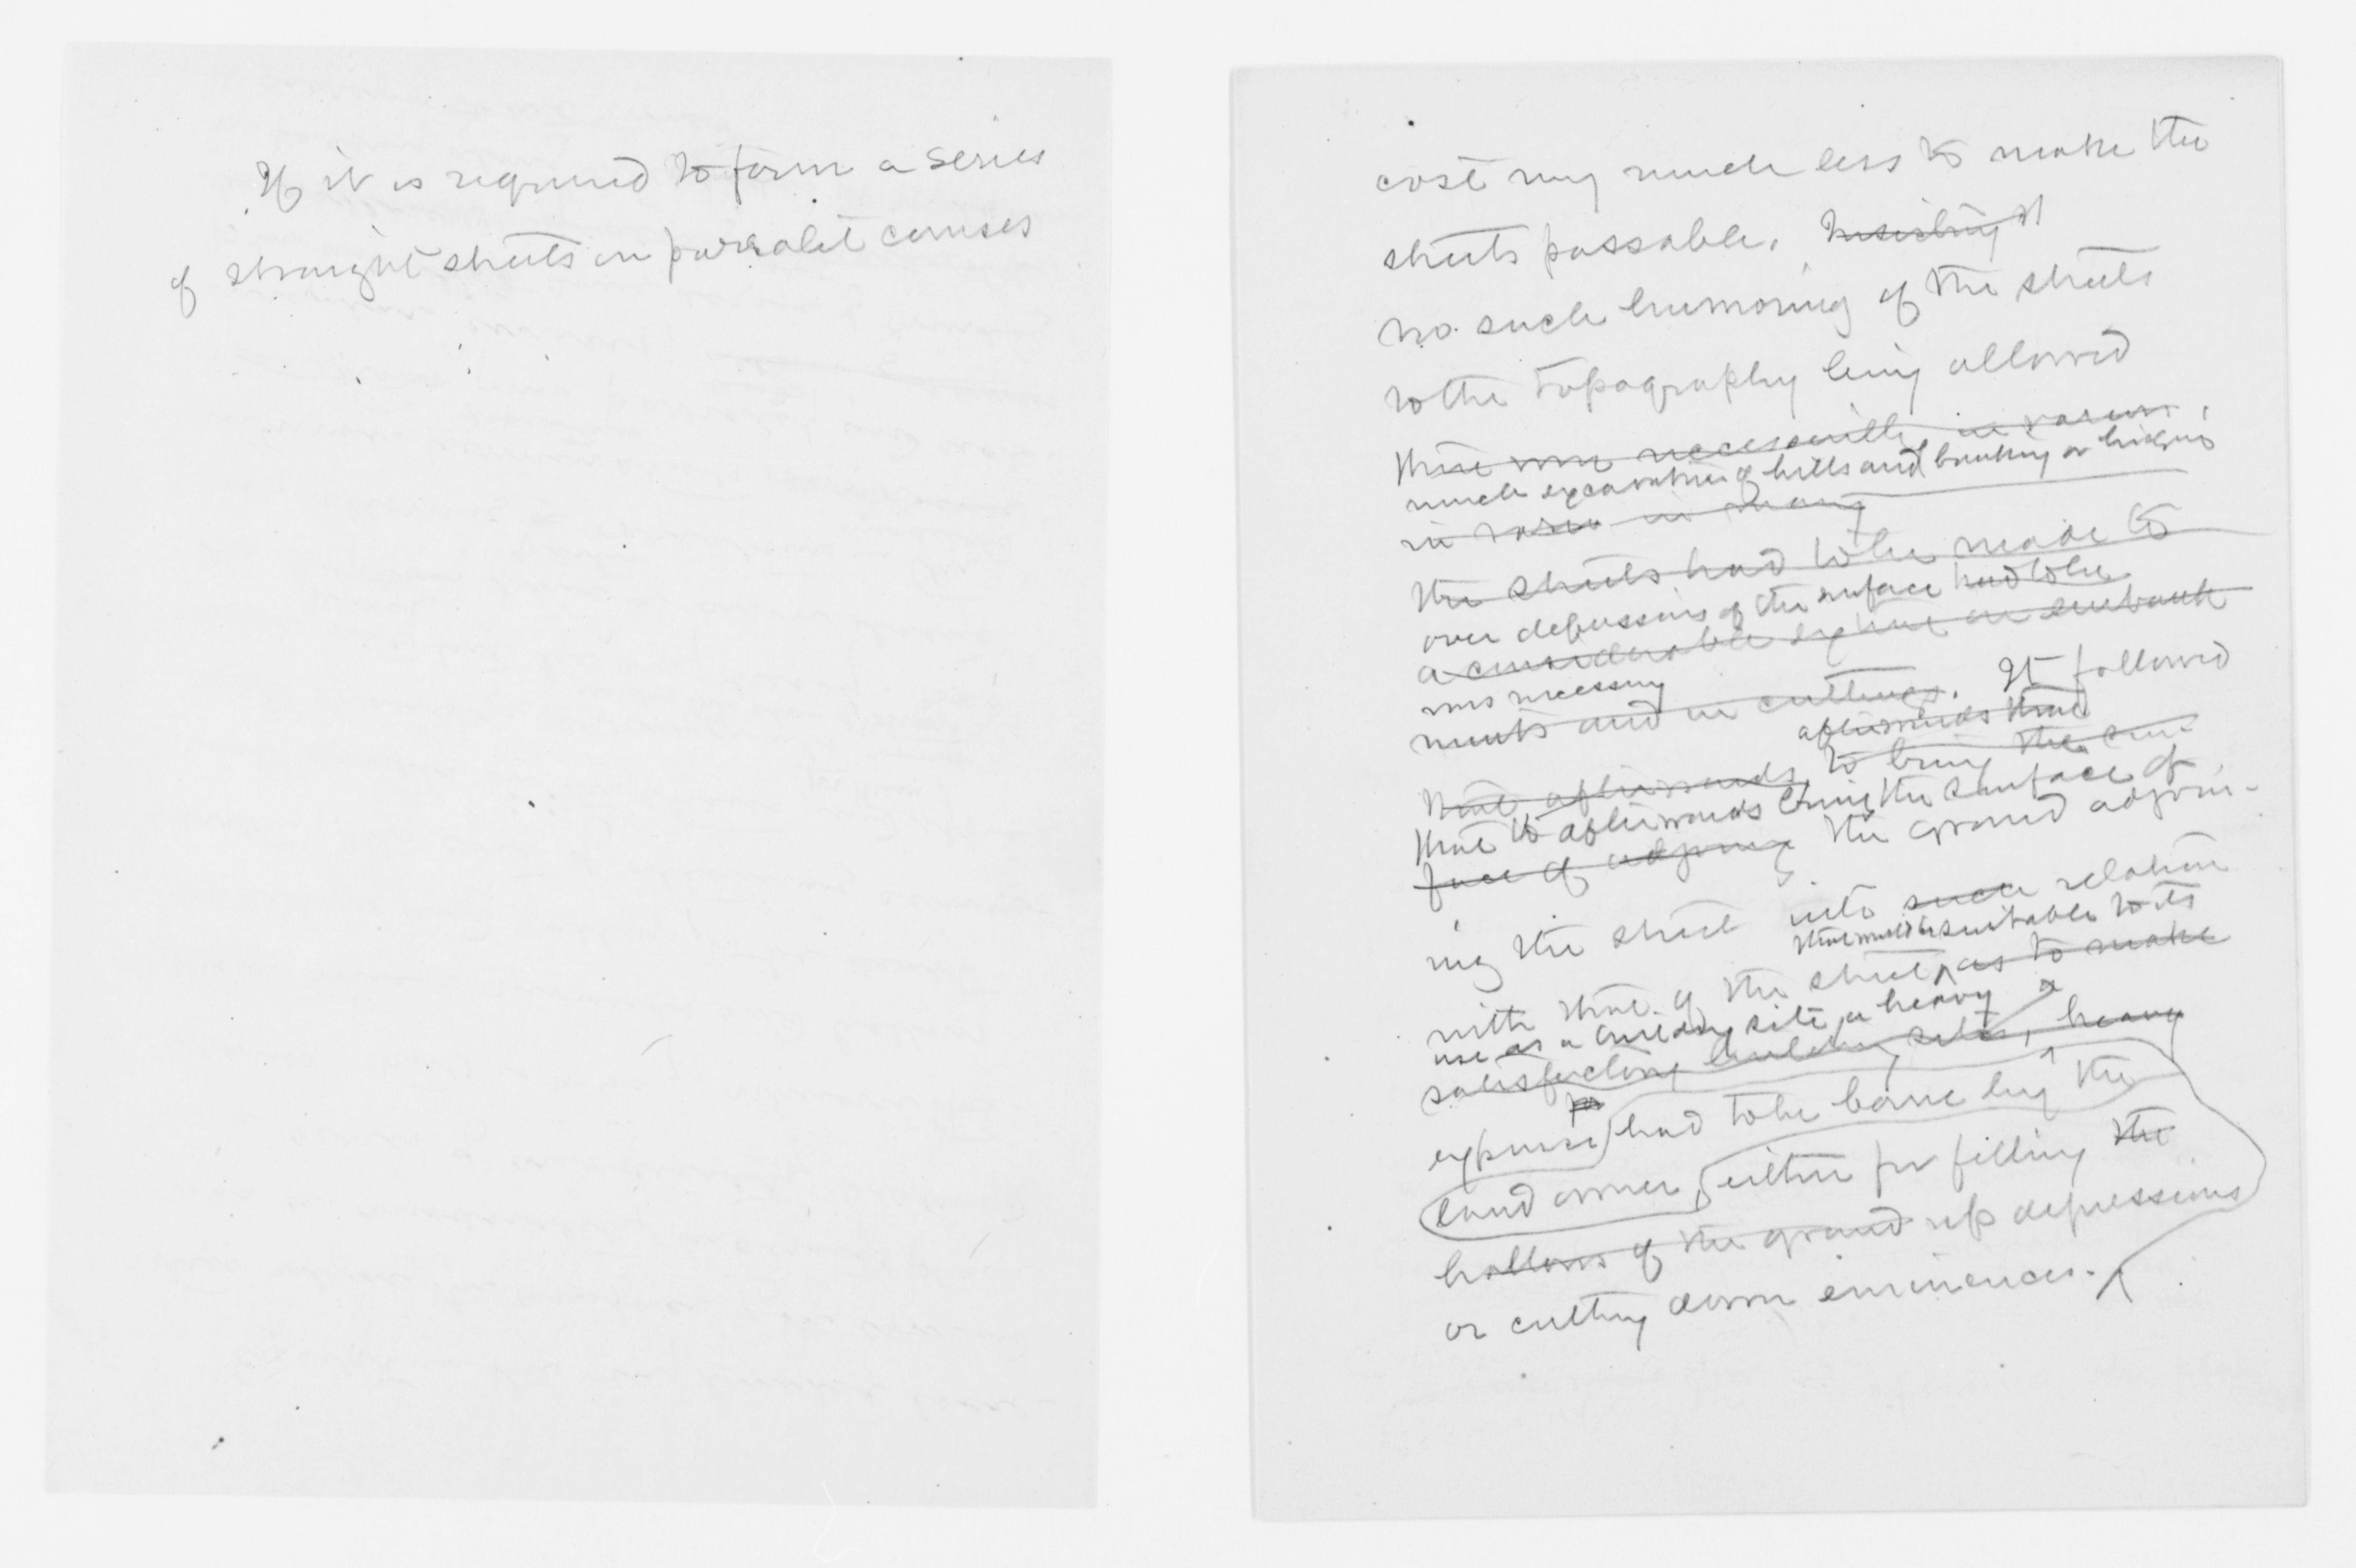 If it is required to form a series
of straight streets on parralel courses
cost very much less to make the
streets passable.
no such humoring of the streets
to the topography being allowed
there was necessarily in various
much excavation of hills and banking or bridging
in
the streets had to be made to
over depressions of the surface had to be
a considerable extent on embank
was necessary
ments and in cuttings. It followed
afterwards that
that afterwards, to bring the sur-
that to afterwards bring the surface of
face of adjoining the ground adjoin-
ing the street into such relation
that would be suitable to its
with that of the street as to make
use as a building site, a heavy
satisfactory building sites, heavy
expense had to be borne by the
land owner either for filling the
hollows of the ground up depressions
or cutting down eminences.